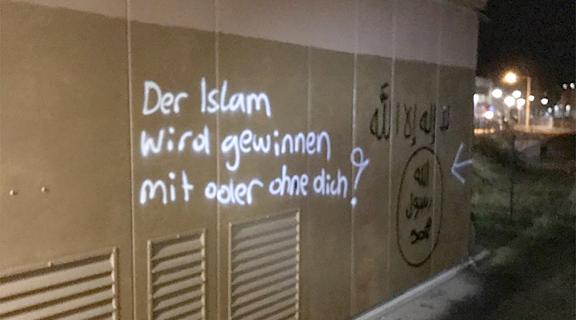 Der Islam
wird gewinnen
mit oder ohne dich!
لا إله إلا الله
الله
رسول
محمد